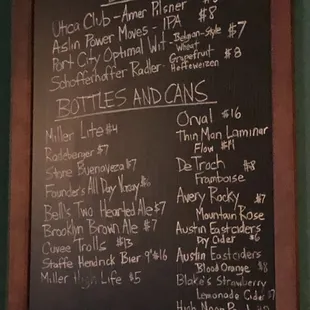 Utica Club - Amer Pilsner
Aslin Power Moves - IPA $8
Port City Optimal Wit - Belgian-Style Wheat $7
Schofferhoffer Radler - Grapefruit Hefeweizen $8
BOTTLES AND CANS
Miller Lite $4
Radeberger $7
Stone Buenaveza $7
Founder's All Day
Bell's Two Hearted Ale $7
Brooklyn Brown Ale $7
Cuvee Trolls $13
Staffe Hendrick Bier 9° $16
Miller High Life $5
Orval $16
Thin Man Laminar
Flow $14
De Troch $8
Framboise
Avery Rocky $7
Mountain Rose
Austin Eastciders
Dry Cider $6
Austin Eastciders
Blood Orange $8
Blake's Strawberry
Lemonade Cider $7
High Noon